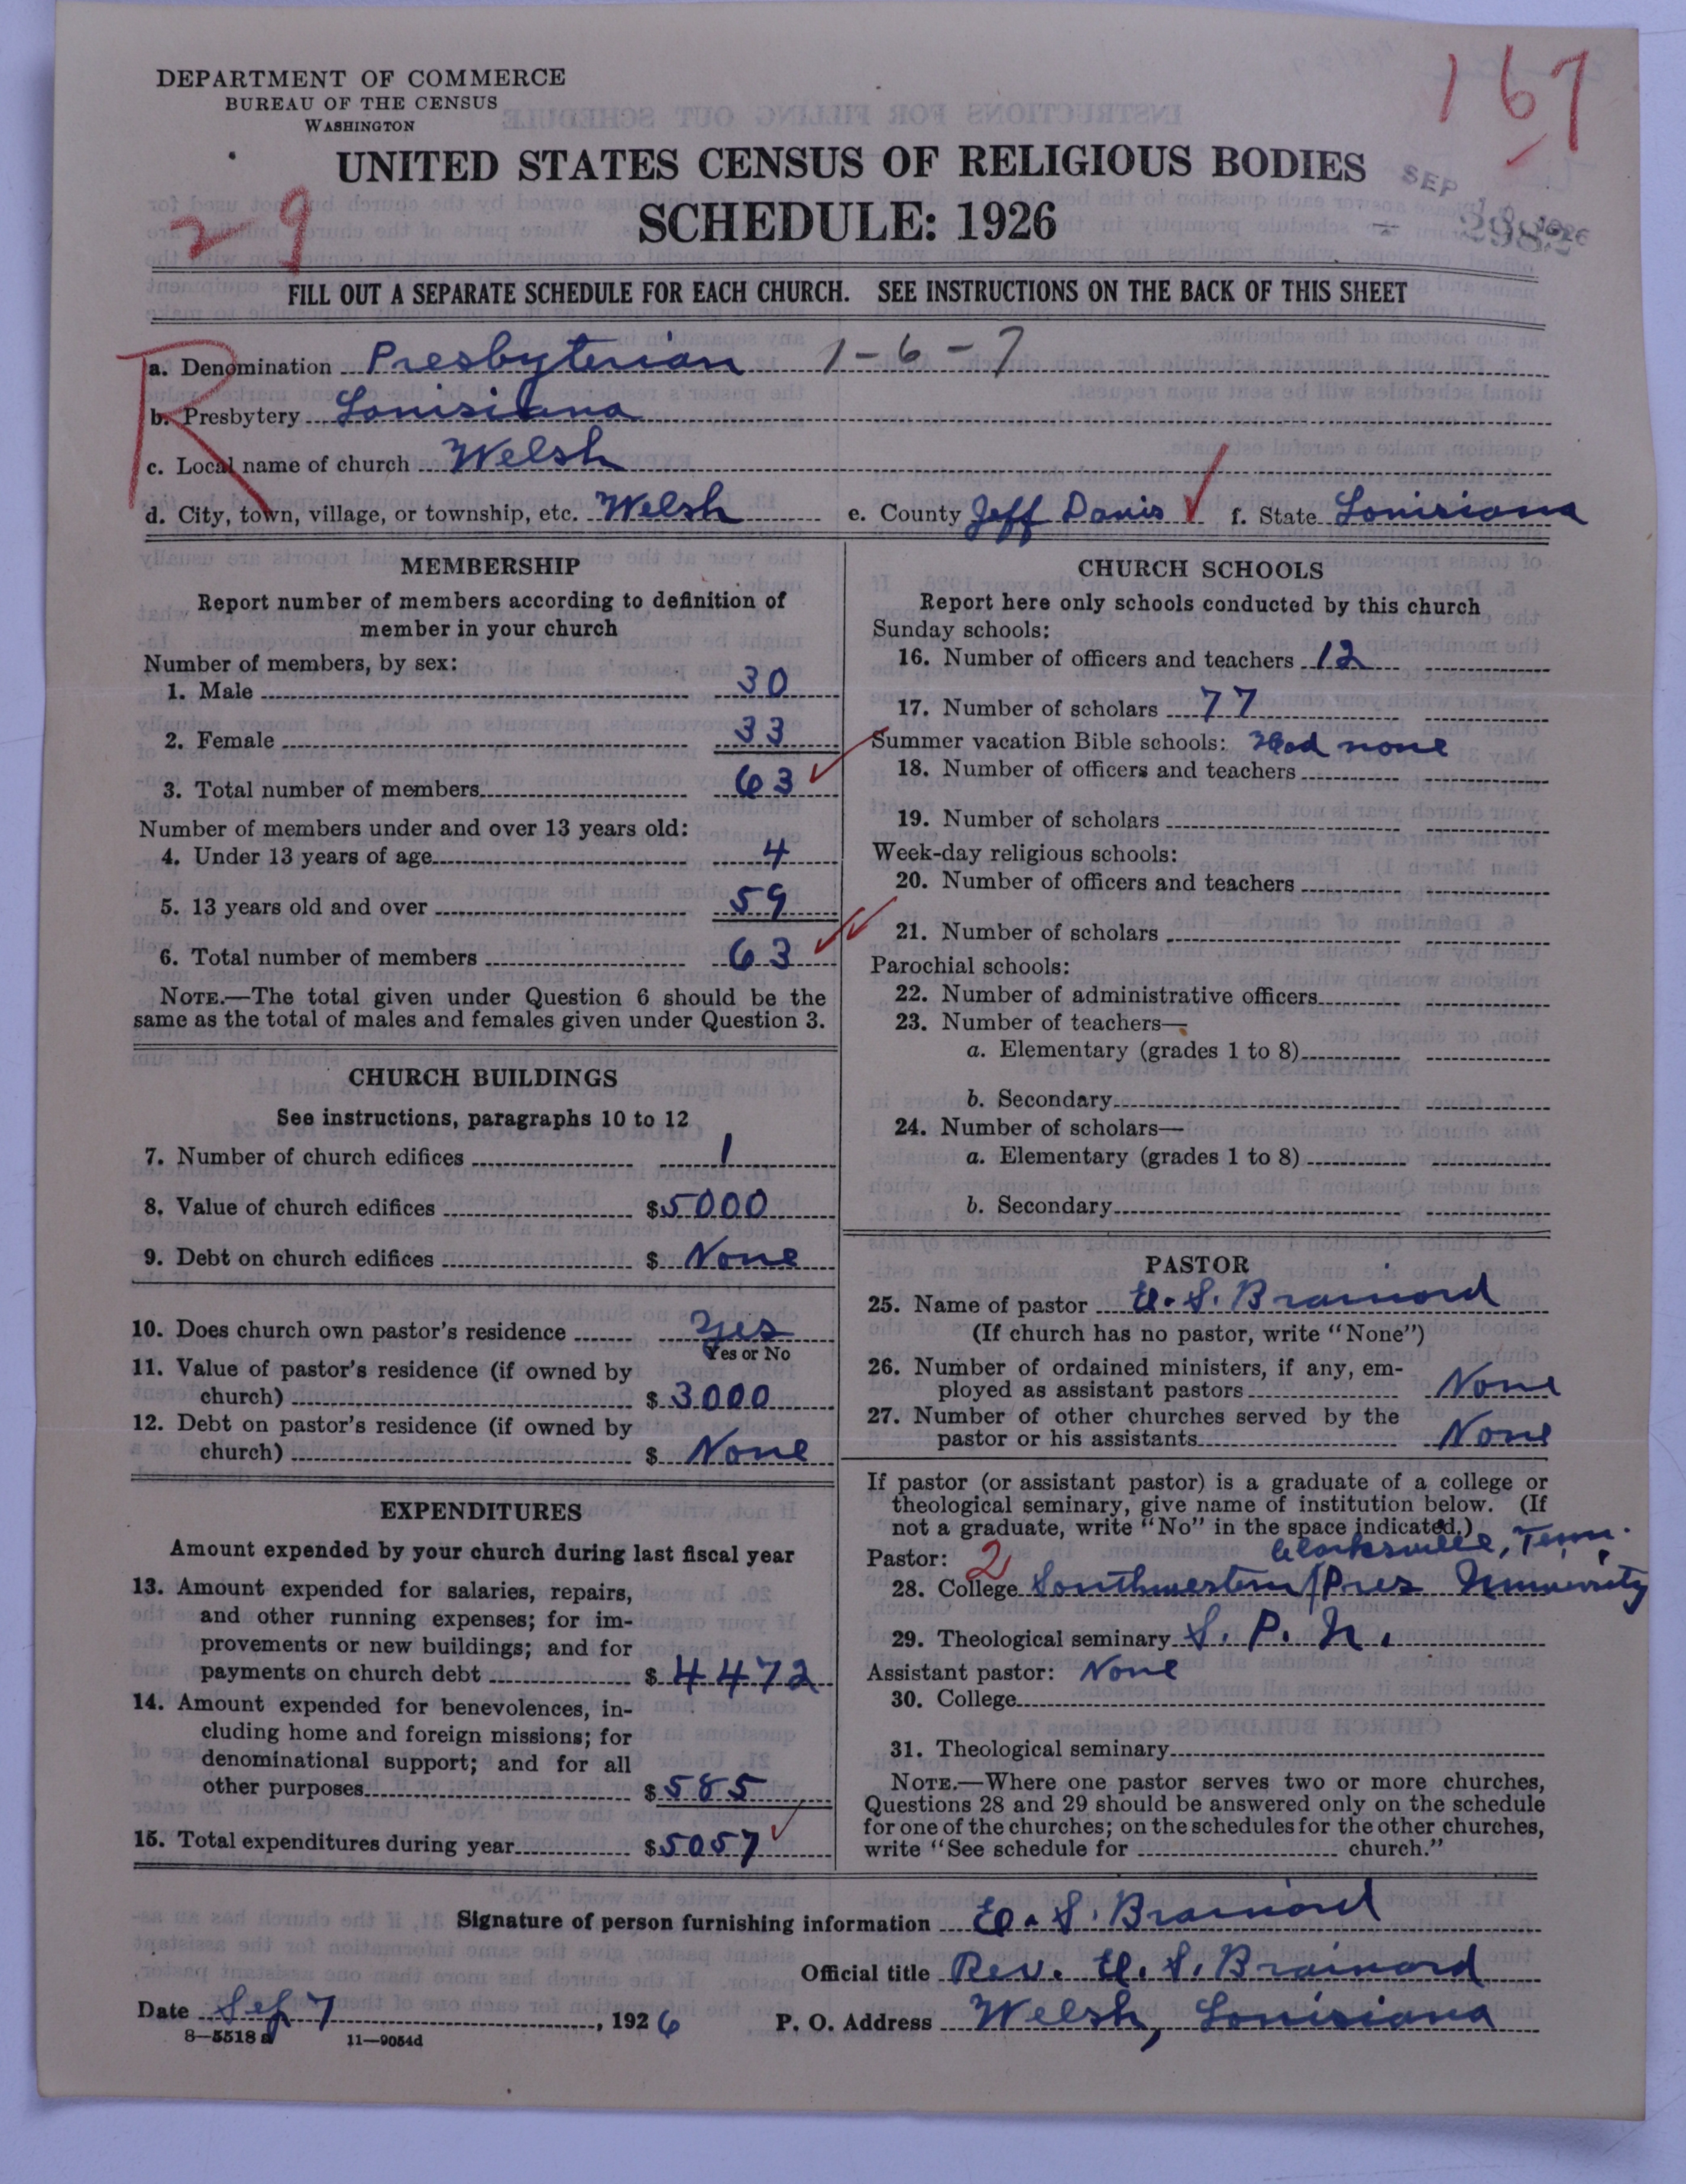 DEPARTMENT OF COMMERCE
BUREAU OF THE CENSUS
WASHINGTON
167
UNITED STATES CENSUS OF RELIGIOUS BODIES
SCHEDULE: 1926
29
SEP 1926
FILL OUT A SEPARATE SCHEDULE FOR EACH CHURCH. SEE INSTRUCTIONS ON THE BACK OF THIS SHEET
R
a. Denomination Presbyterian 1-6-7
b. Presbytery Louisiana
c. Local name of church Welsh
d. City, town, village, or township, etc. Welsh e. County Jeff Davis f. State Louisiana
MEMBERSHIP
Report number of members according to definition of
member in your church
Number of members, by sex:
1. Male 30
2. Female 33
3. Total number of members 63
Number of members under and over 13 years old:
4. Under 13 years of age 4
5. 13 years old and over 59
6. Total number of members 63
NOTE.—The total given under Question 6 should be the
same as the total of males and females given under Question 3.
CHURCH BUILDINGS
See instructions, paragraphs 10 to 12
7. Number of church edifices 1
8. Value of church edifices $5000
9. Debt on church edifices $ None
10. Does church own pastor's residence Yes
Yes or No
11. Value of pastor's residence (if owned by
church) $3000
12. Debt on pastor's residence (if owned by
church) $ None
EXPENDITURES
Amount expended by your church during last fiscal year
13. Amount expended for salaries, repairs,
and other running expenses; for im-
provements or new buildings; and for
payments on church debt $4472
14. Amount expended for benevolences, in-
cluding home and foreign missions; for
denominational support; and for all
other purposes $585
15. Total expenditures during year $5057
CHURCH SCHOOLS
Report here only schools conducted by this church
Sunday schools:
16. Number of officers and teachers 12
17. Number of scholars 77
Summer vacation Bible schools: Had none
18. Number of officers and teachers
19. Number of scholars
Week-day religious schools:
20. Number of officers and teachers
21. Number of scholars
Parochial schools:
22. Number of administrative officers
23. Number of teachers—
a. Elementary (grades 1 to 8)
b. Secondary
24. Number of scholars—
a. Elementary (grades 1 to 8)
b. Secondary
PASTOR
25. Name of pastor E. S. Brainard
(If church has no pastor, write "None")
26. Number of ordained ministers, if any, em-
ployed as assistant pastors None
27. Number of other churches served by the
pastor or his assistants None
If pastor (or assistant pastor) is a graduate of a college or
theological seminary, give name of institution below. (If
not a graduate, write "No" in the space indicated.)
Clarksville, Tenn.
Pastor: 2
28. College Southwestern Pres University
29. Theological seminary S. P. U.
Assistant pastor: None
30. College
31. Theological seminary
NOTE.—Where one pastor serves two or more churches,
Questions 28 and 29 should be answered only on the schedule
for one of the churches; on the schedules for the other churches,
write "See schedule for church."
Signature of person furnishing information E. S. Brainard
Official title Rev. E. S. Brainard
Date Sep 7, 1926 P. O. Address Welsh, Louisiana
8—5518a 11—9054d